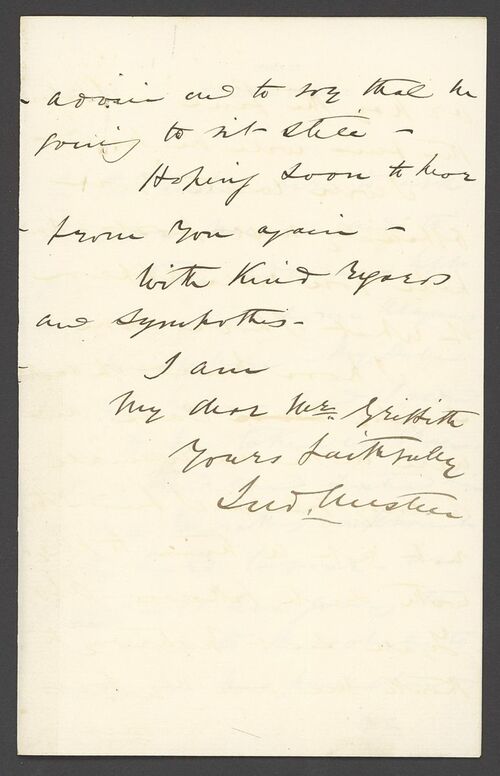 again and to say that he
going to sit still -
Hoping soon to hear
from you again -
With Kind Regards
and Sympathies -
I am
My dear Mrs. Griffith
Yours faithfully